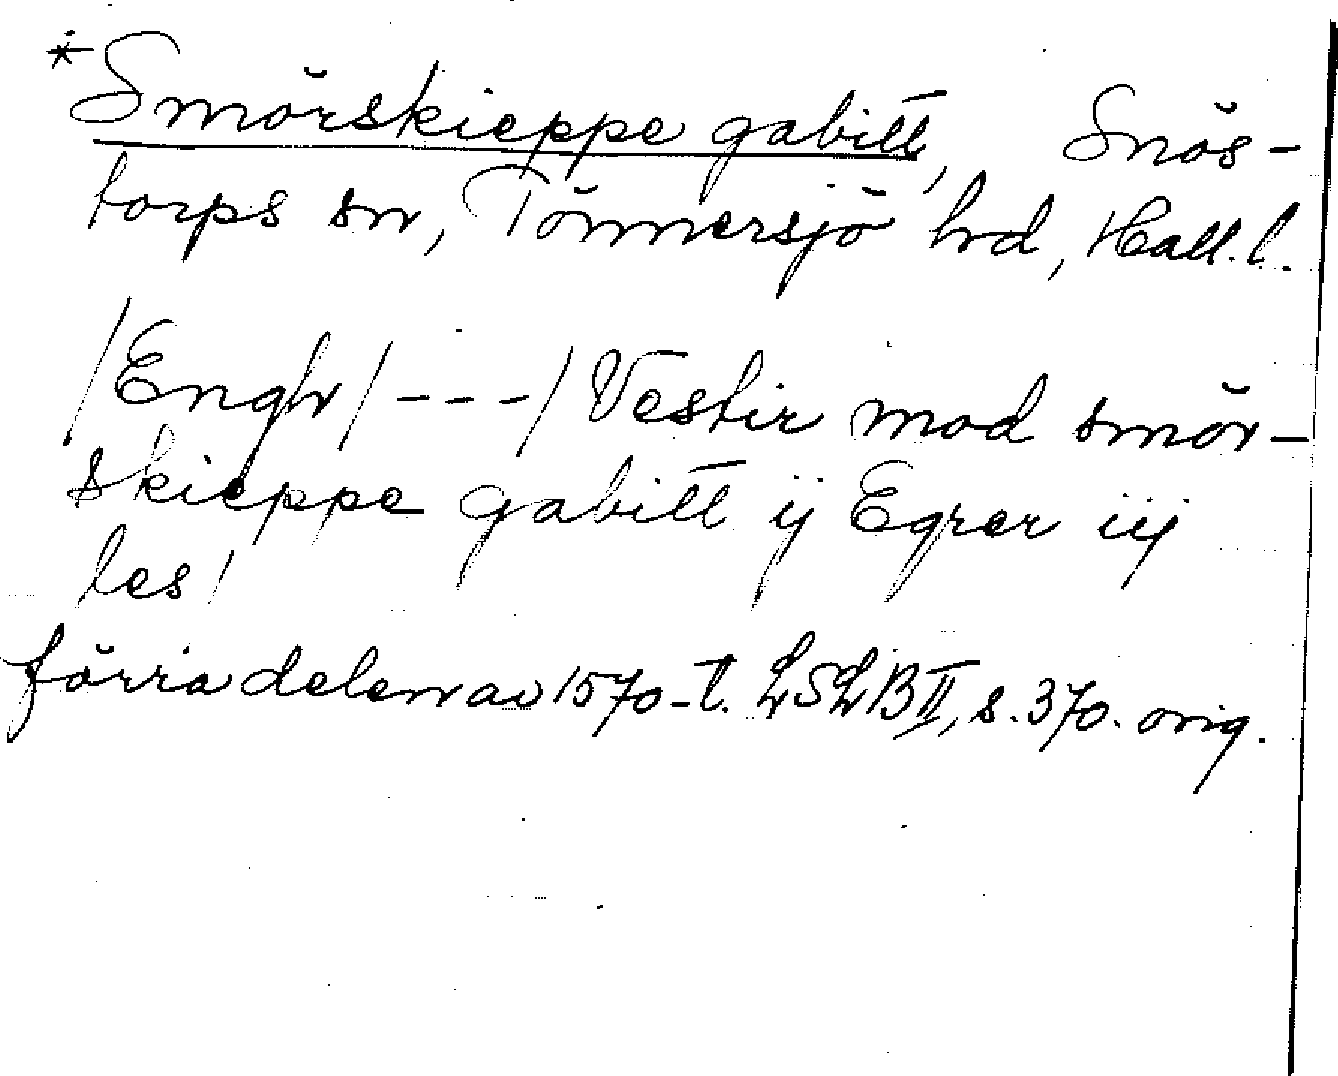 *Smörskieppe gabitt, Snös-
torps sn, Tönnersjö hd, Hall.l.
/Engh/ --- / Vestir mod smör-
skieppe gabitt ij Egrer iij
les/
förra delen av 1570-t. LSLB II, s. 370. orig.